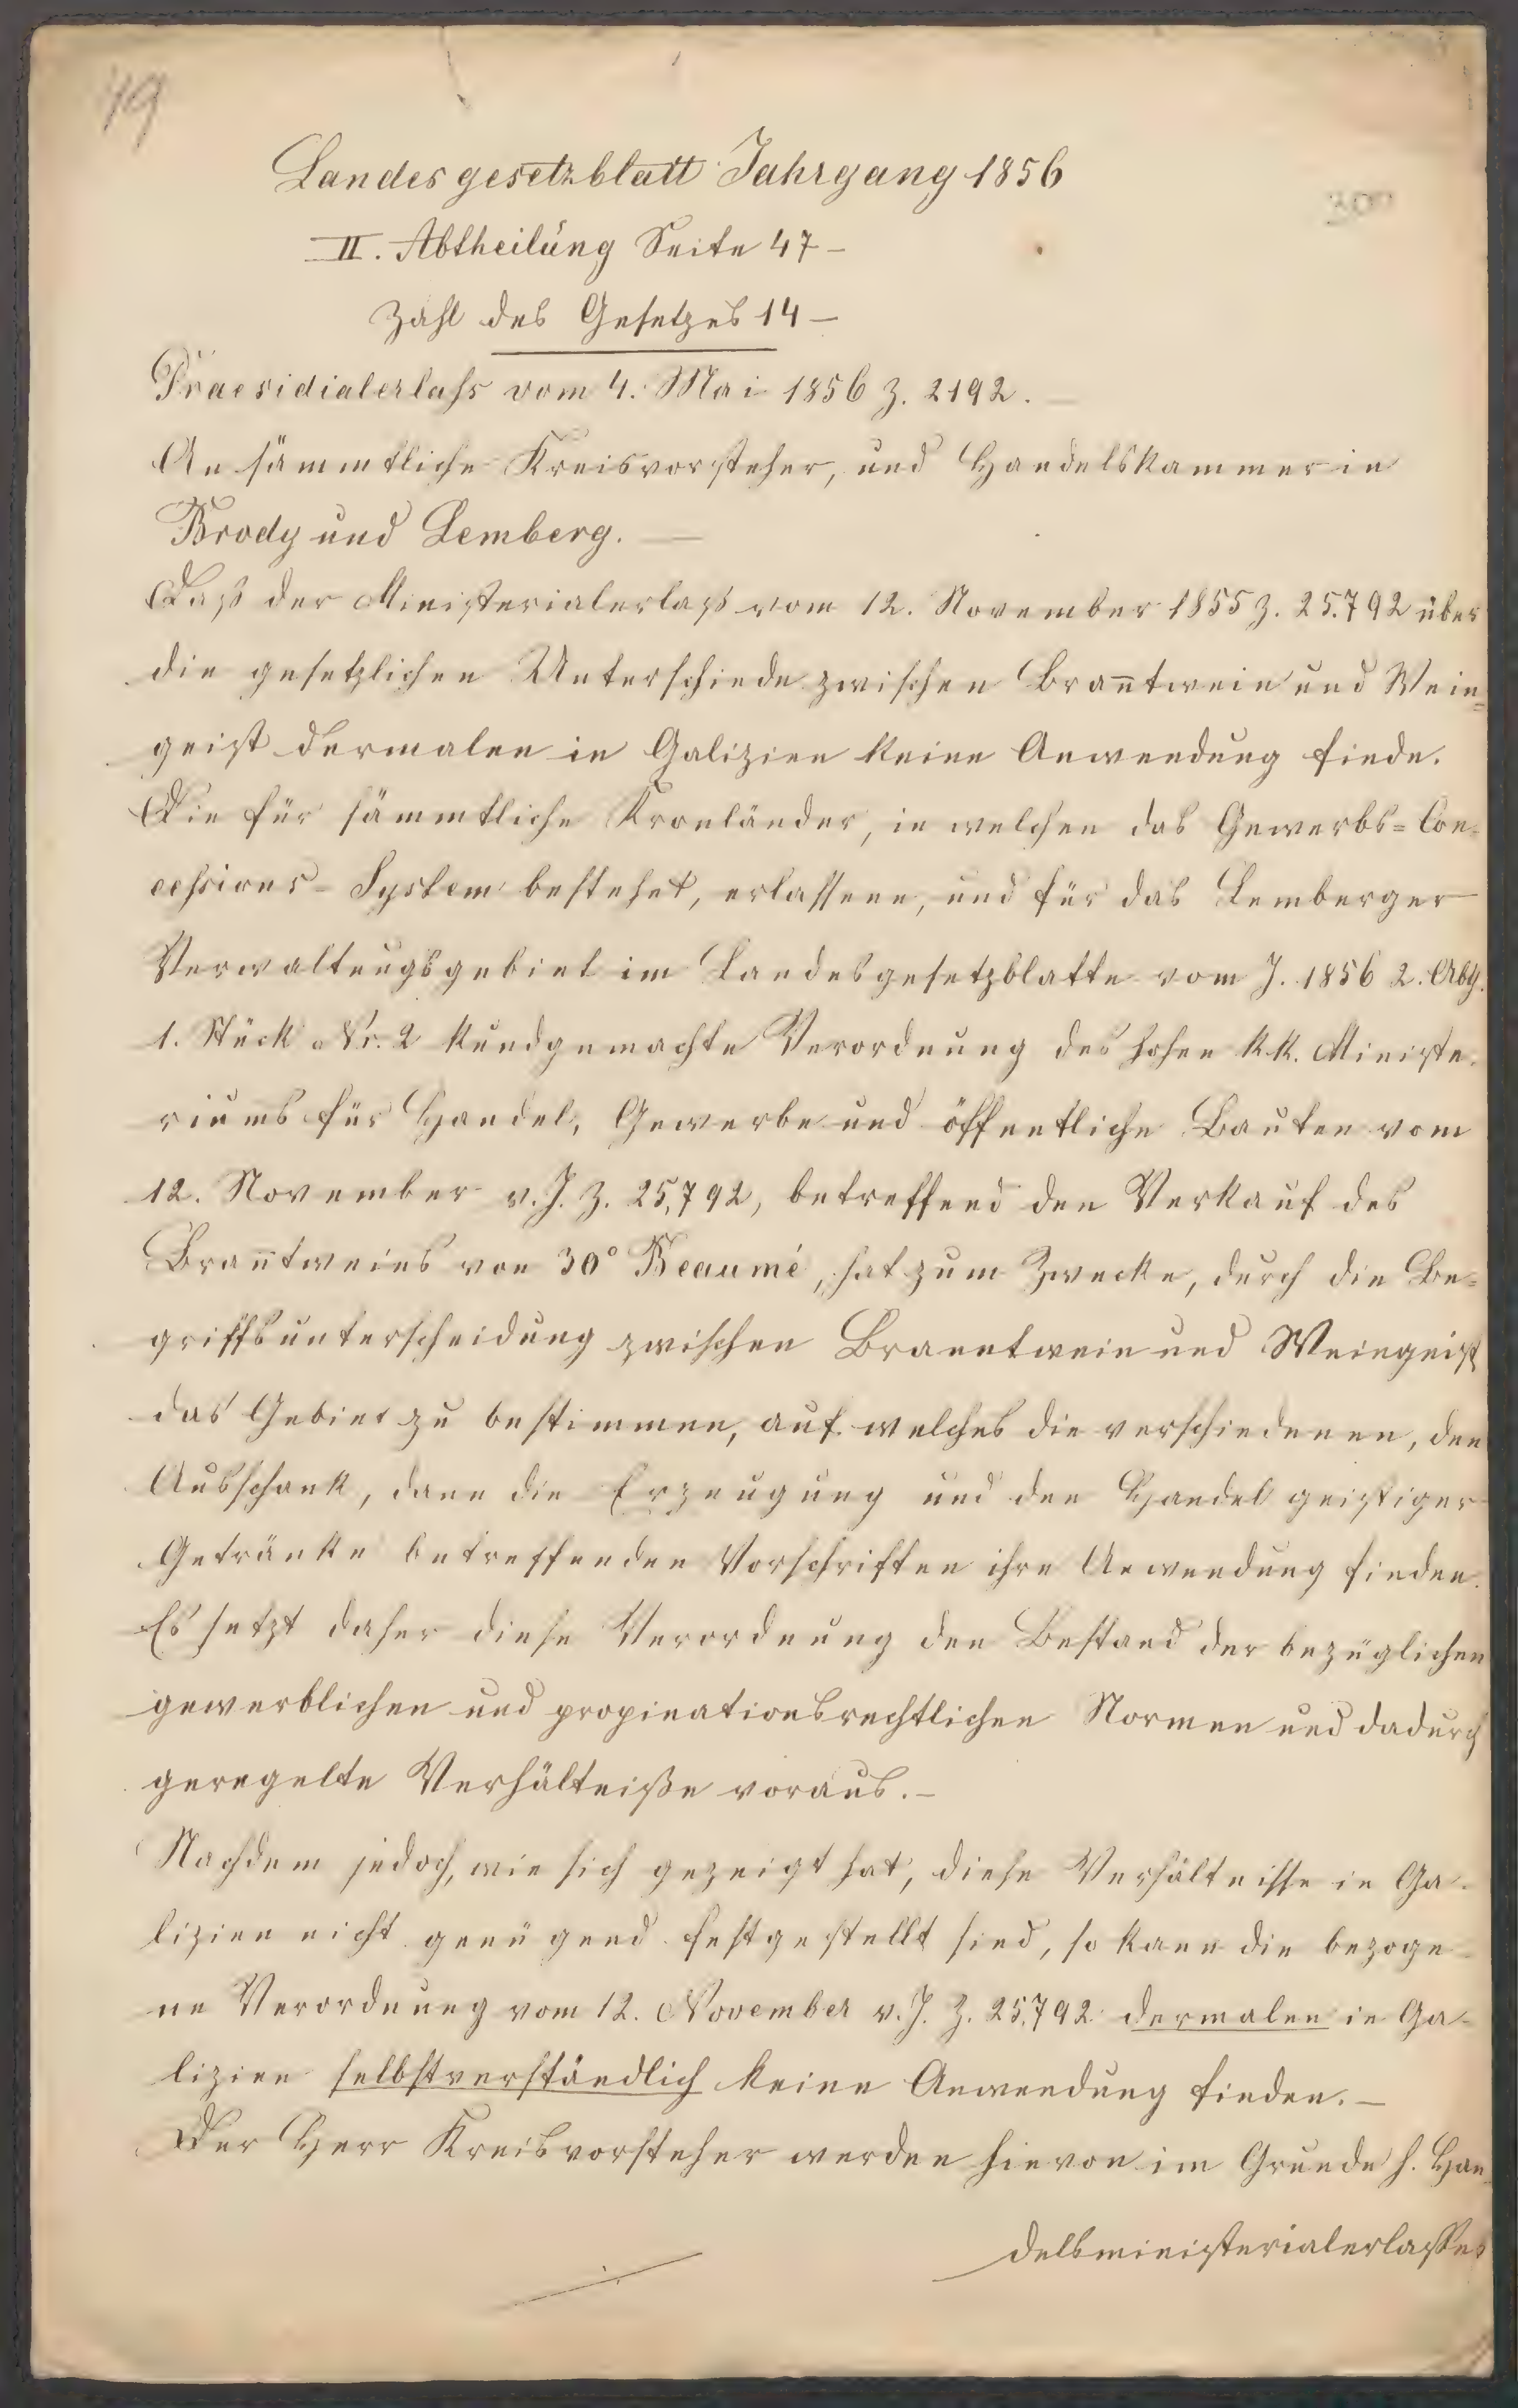 49
300
Landesgesetzblatt Jahrgang 1856
II. Abtheilung Seite 47 –
Zahl des Gesetzes 14 –
Praesidialerlaß vom 4. Mai 1856 Z. 2192. –
An sämmtliche Kreisvorsteher, und Handelskammer in
Brody und Lemberg. –
Daß der Ministerialerlaß vom 12. November 1855 Z. 25.792 über
die gesetzlichen Unterschiede zwischen Bran̄twein und Wein=
geist dermalen in Galizien keine Anwendung finde.
Die für sämmtliche Kronländer, in welchen das Gewerbs=Con=
cessions-System bestehet, erlassene, und für das Lemberger
Verwaltungsgebiet im Landesgesetzblatte vom J. 1856 2. Abth.
1. Stück Nr. 2 kundgemachte Verordnung des hohen k.k. Ministe-
riums für Handel, Gewerbe und öffentliche Bauten vom
12. November v. J. Z. 25,792, betreffend den Verkauf des
Bran̄tweins von 30° Beaumé, hat zum Zwecke, durch die Be=
griffsunterscheidung zwischen Branntwein und Weingeist
das Gebiet zu bestimmen, auf welches die verschiedenen, den
Ausschank, dann die Erzeugung und den Handel geistiger
Getränke betreffenden Vorschriften ihre Anwendung finden.
Es setzt daher diese Verordnung den Bestand der bezüglichen
gewerblichen und propinationsrechtlichen Normen und dadurch
geregelte Verhältniße voraus. –
Nachdem jedoch, wie sich gezeigt hat, diese Verhältnisse in Ga-
lizien nicht genügend festgestellt sind, so kann die bezoge-
ne Verordnung vom 12. November v. J. Z. 25,792 dermalen in Ga-
lizien selbstverständlich keine Anwendung finden. –
Der Herr Kreisvorsteher werden hievon im Grunde h. Han-
delsministerialerlasses